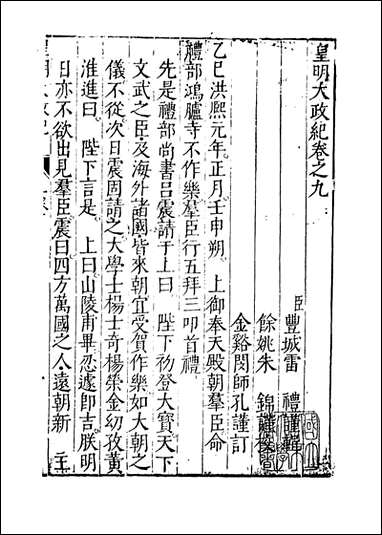 皇明大政紀卷之九
臣豐城雷　禮謹輯
餘姚朱　錦謹校
金谿閔師孔謹訂
乙巳洪熙元年正月壬申朔　上御奉天殿朝羣臣命
禮部鴻臚寺不作樂羣臣行五拜三叩首禮
先是禮部尚書呂震請于上曰　陛下初登大寶天下
文武之臣及海外諸國皆來朝宜受賀作樂如大朝之
儀不從次日震固請之大學士楊士奇楊榮金幼孜黃
淮進曰　陛下言是　上曰山陵甫畢忍遽卽吉朕明
日亦不欲出見羣臣震曰四方萬國之人遠朝新　主